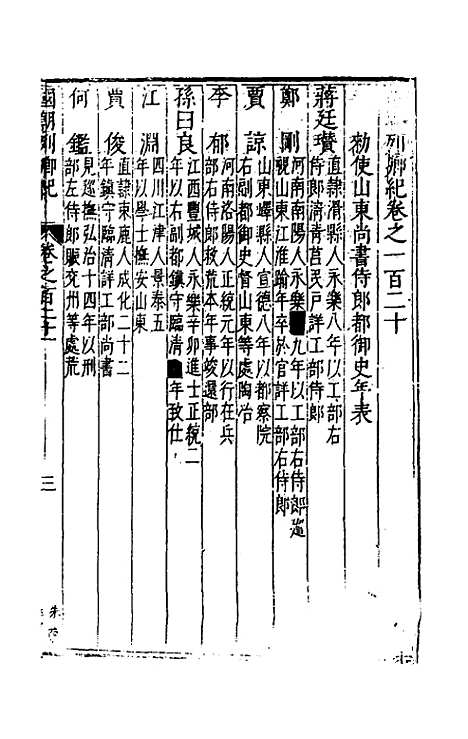 列卿紀卷之一百二十
勑使山東尚書侍郎都御史年表
蔣廷瓚 直隷滑縣人永樂八年以工部右
侍郎濟青莒民戶詳工部侍郎
鄭剛 河南南陽人永樂九年以工部右侍郎巡
視山東江淮踰年卒於官詳工部右侍郎
賈諒 山東嶧縣人宣德八年以都察院
右副都御史督山東等處陶冶
李郁 河南洛陽人正統元年以行在兵
部右侍郎救荒本年事竣還部
孫曰良 江西豐城人永樂辛卯進士正統二
年以右副都鎮守臨清年致仕
江淵 四川江津人景泰五
年以學士撫安山東
賈俊 直隷束鹿人成化二十二
年鎮守臨清詳工部尚書
何鑑 見巡撫弘治十四年以刑
部左侍郎賑兖州等處荒
國朝列卿紀 卷之一百二十 三